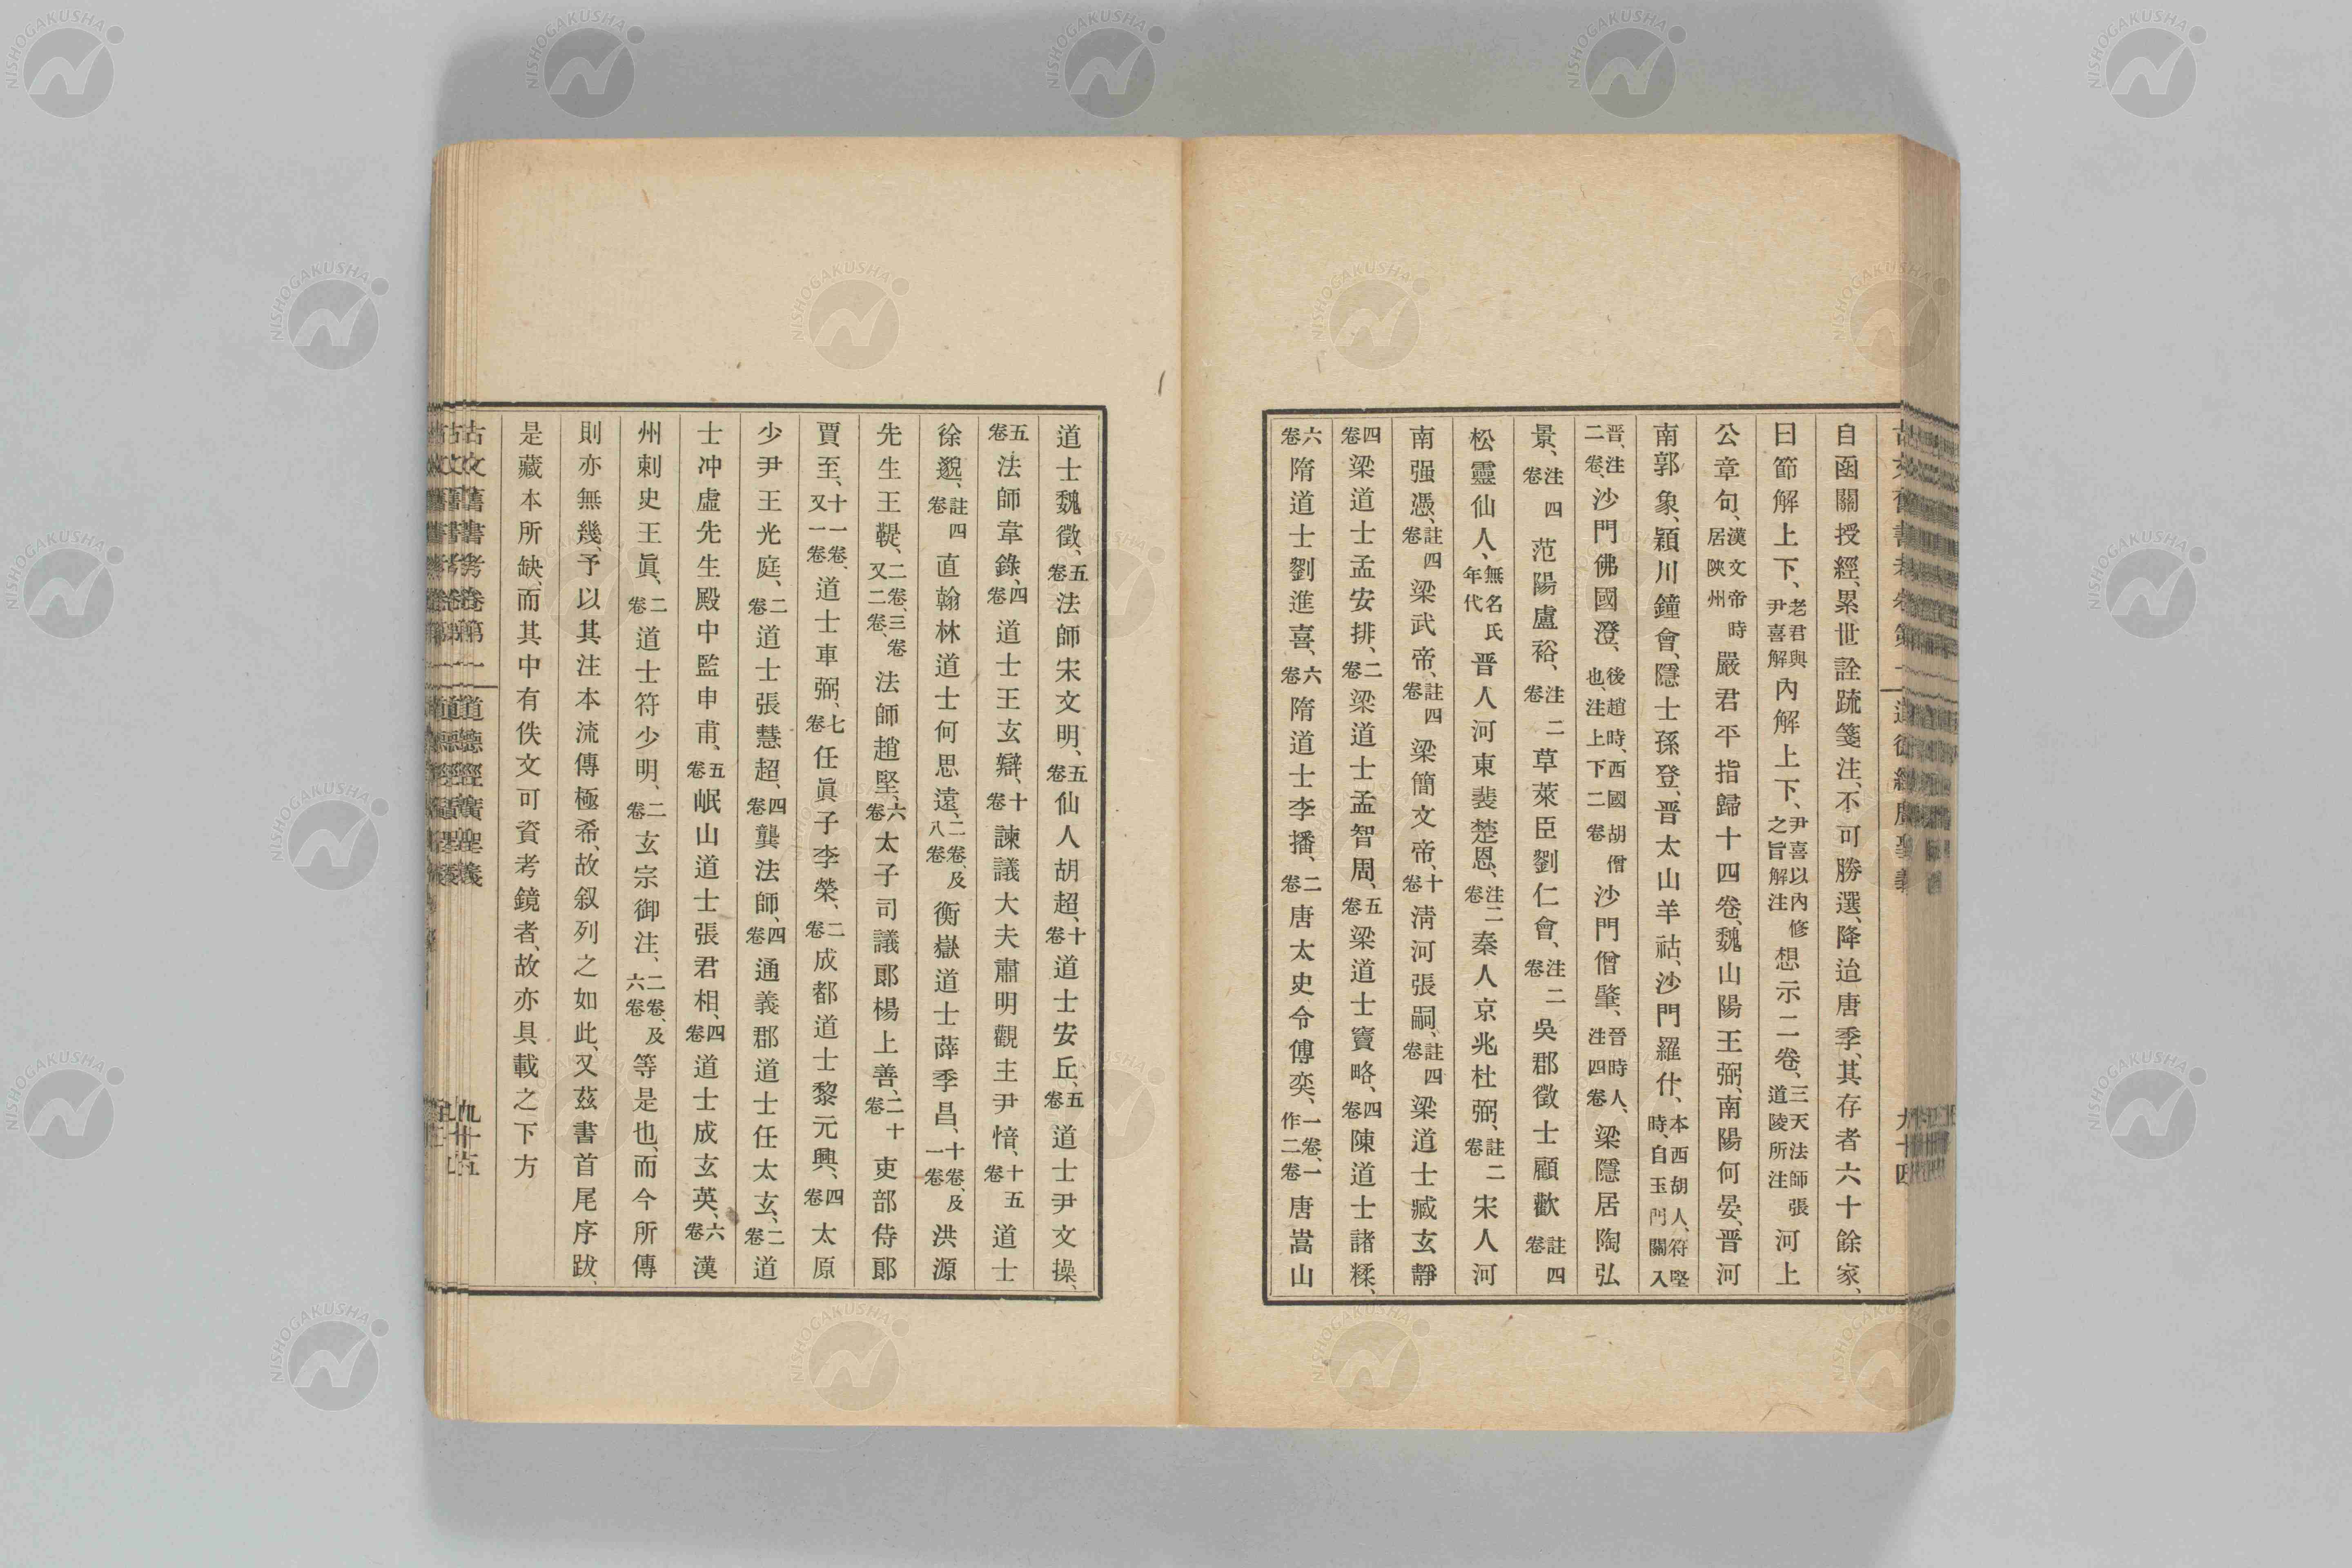 自函關授經、累世詮疏箋注、不可勝選、降迨唐季、其存者六十餘家、
曰節解上下、老君與尹喜解內解上下、尹喜以內修之旨解注想示二卷、三天法師張道陵所注河上
公章句、漢文帝時居陝州嚴君平指歸十四卷、魏山陽王弼、南陽何晏、晋河
南郭象、穎川鐘會、隱士孫登、晋太山羊祜、沙門羅什、本西胡人、符堅時、自玉門關入
晋、注二卷、沙門佛國澄、後趙時、西國胡僧也、注上下二卷沙門僧肇、晉時人、注四卷梁隱居陶弘
景、注四卷范陽盧裕、注二卷草萊臣劉仁會、注二卷吳郡徵士顧歡註四卷
松靈仙人、無名氏年代晋人河東裴楚恩、注二卷秦人京兆杜弼、註二卷宋人河
南强憑、註四卷梁武帝、註四卷梁簡文帝、十卷淸河張嗣、註四卷梁道士臧玄靜
四卷梁道士孟安排、二卷梁道士孟智周、五卷梁道士竇略、四卷陳道士諸糅、
六卷隋道士劉進喜、六卷隋道士李播、二卷唐太史令傅奕、一卷、一作二卷唐嵩山
道士魏徵、五卷法師宋文明、五卷仙人胡超、十卷道士安丘、五卷道士尹文操、
五卷法師韋錄、四卷道士王玄辯、十卷諫議大夫肅明觀主尹愔、十五卷道士
徐邈、註四卷直翰林道士何思遠、二卷、及八卷衡嶽道士薛季昌、十卷、及一卷洪源
先生王鞮、二卷、三卷又二卷、法師趙堅、六卷太子司議郎楊上善、二十卷吏部侍郎
賈至、十一卷、又一卷道士車弼、七卷任眞子李榮、二卷成都道士黎元興、四卷太原
少尹王光庭、二卷道士張慧超、四卷龔法師、四卷通義郡道士任太玄、二卷道
士冲虛先生殿中監申甫、五卷岷山道士張君相、四卷道士成玄英、六卷漢
州刺史王眞、二卷道士符少明、二卷玄宗御注、二卷、及六卷等是也、而今所傳
則亦無幾、予以其注本流傳極希、故叙列之如此、又茲書首尾序跋、
是藏本所缺、而其中有佚文可資考鏡者、故亦具載之下方
古文舊書考卷第一 道德經廣聖義 九十五